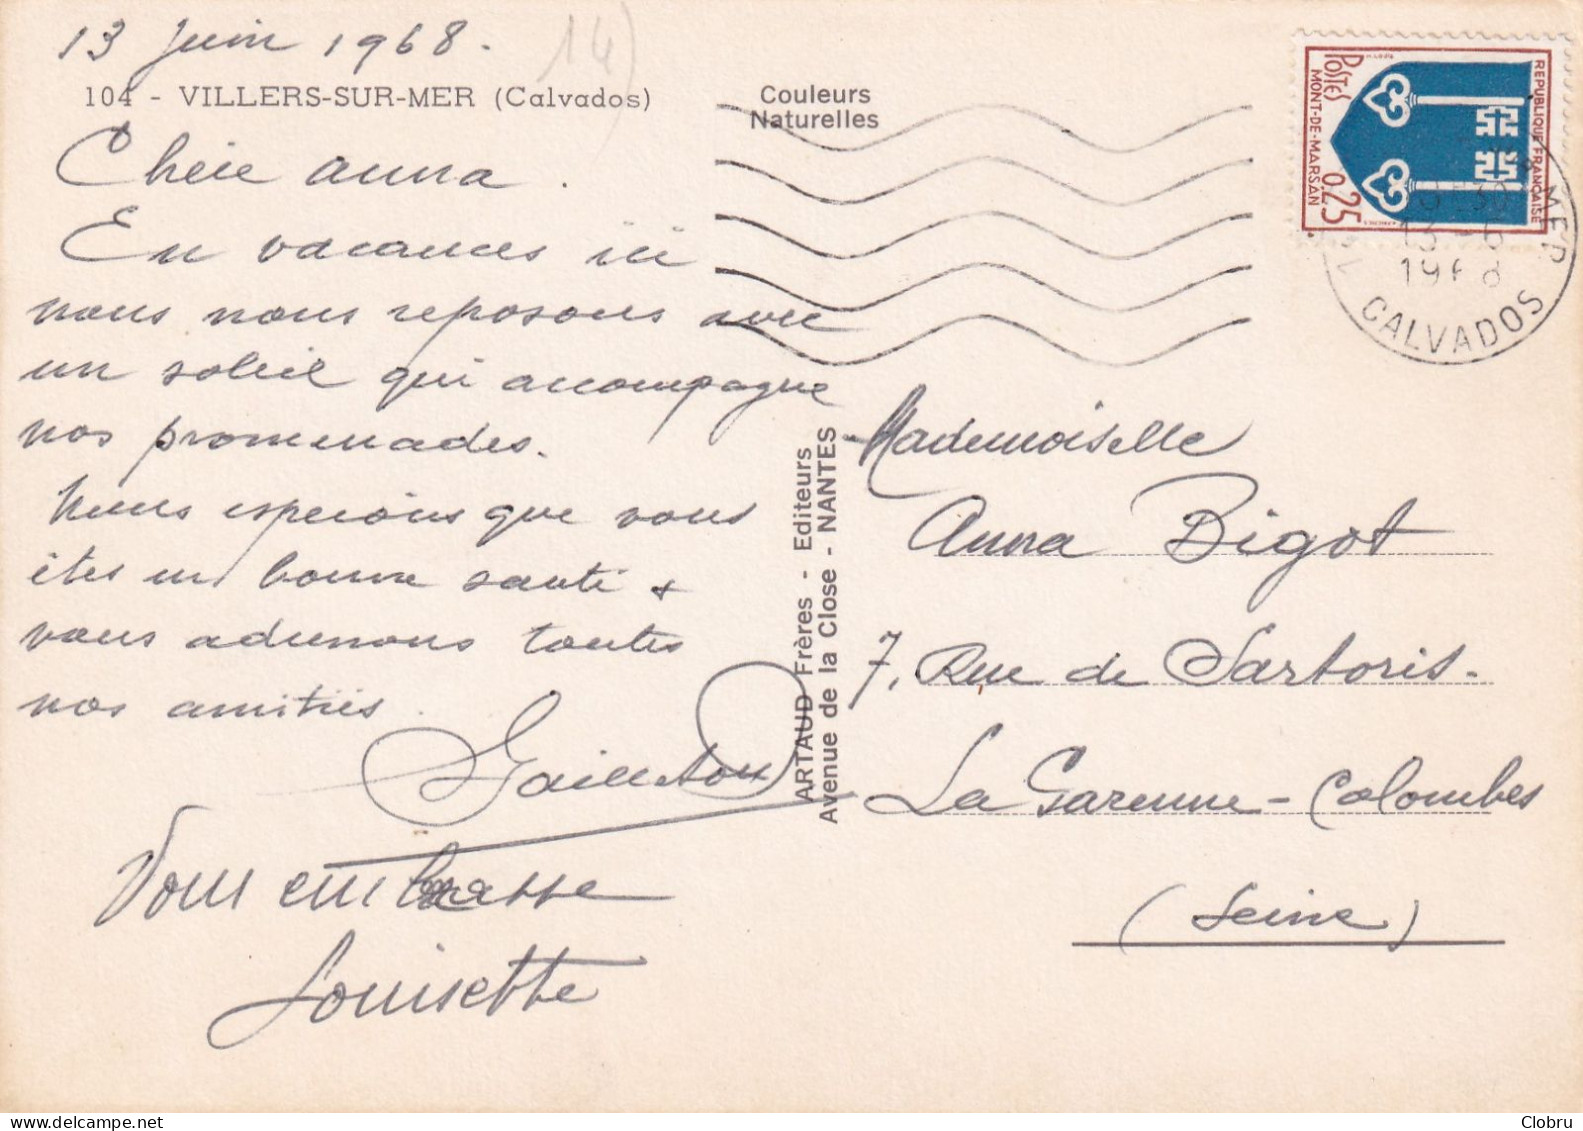 13 Juin 1968.
14)
104 - VILLERS-SUR-MER (Calvados)
Couleurs
Naturelles
Chère Anna.
En vacances ici
nous nous reposons avec
un soleil qui accompagne
nos promenades.
Nous esperons que vous
êtes en bonne santé +
vous adressons toutes
nos amitiés.
Gailleton
Vous embrasse
Louisette
ARTAUD Frères - Editeurs
Avenue de la Close - NANTES
REPUBLIQUE FRANÇAISE
POSTES
MONT-DE-MARSAN
0,25
MER
13 - 6
1968
CALVADOS
Mademoiselle
Anna Bigot
7, Rue de Sartoris-
La Garenne-Colombes
(Seine)
Clobru